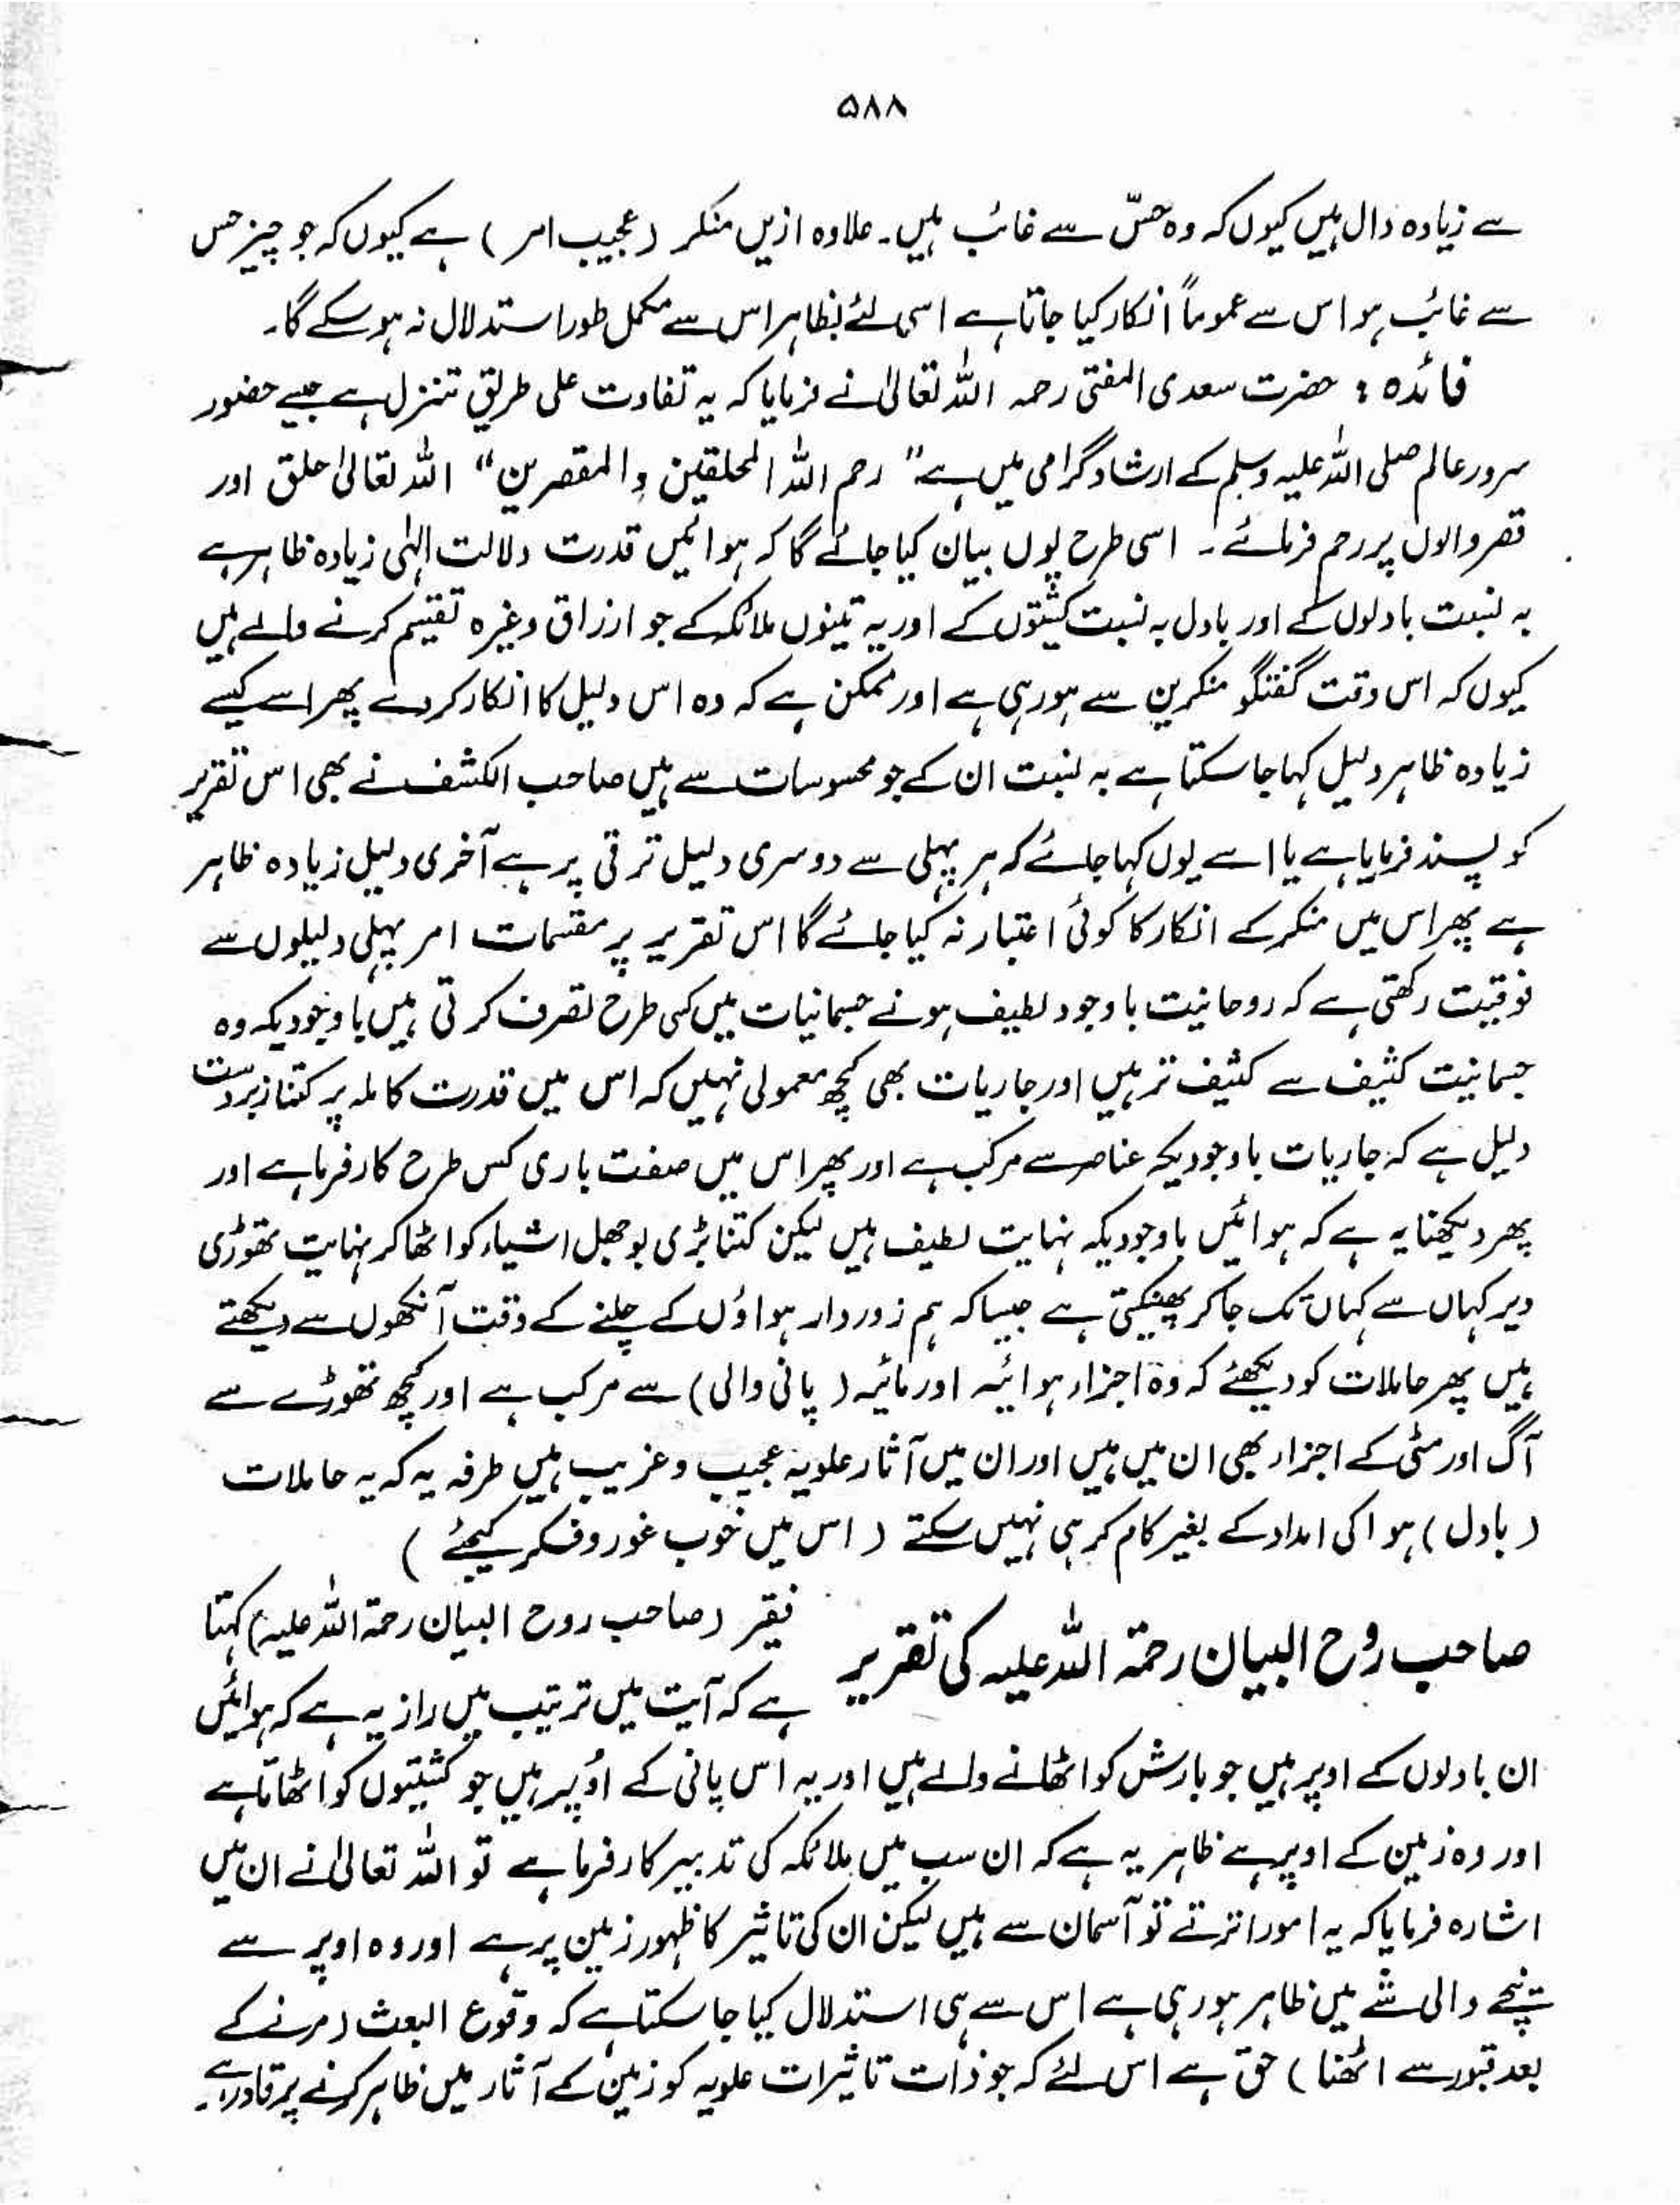 ۵۸۸
سے زیادہ دال ہیں کیوں کہ وہ حسّ سے غائب ہیں۔ علاوہ ازیں منکر (عجیب امر) ہے کیوں کہ جو چیز حس
سے غائب ہو اس سے عموماً انکار کیا جاتا ہے اسی لئے بظاہر اس سے مکمل طور استدلال نہ ہو سکے گا۔
فائدہ : حضرت سعدی المفتی رحمہ اللہ تعالیٰ نے فرمایا کہ یہ تفاوت علی طریق تنزل ہے جیسے حضور
سرور عالم صلی اللہ علیہ وسلم کے ارشاد گرامی میں ہے "رحم اللہ المحلقین والمقصرین" اللہ تعالیٰ حلق اور
قصر والوں پر رحم فرمائے۔ اسی طرح یوں بیان کیا جائے گا کہ ہوائیں قدرت دلالت الٰہی زیادہ ظاہر ہے
بہ نسبت بادلوں کے اور بادل بہ نسبت کشتیوں کے اور یہ تینوں ملائکہ کے جو ارزاق وغیرہ تقسیم کرنے والے ہیں
کیوں کہ اس وقت گفتگو منکرین سے ہو رہی ہے اور ممکن ہے کہ وہ اس دلیل کا انکار کر دے پھر اسے کیسے
زیادہ ظاہر دلیل کہا جا سکتا ہے بہ نسبت ان کے جو محسوسات سے ہیں صاحب الکشف نے بھی اس تقریر
کو پسند فرمایا ہے یا اسے یوں کہا جائے کہ ہر پہلی سے دوسری دلیل ترقی پر ہے آخری دلیل زیادہ ظاہر
ہے پھر اس میں منکر کے انکار کا کوئی اعتبار نہ کیا جائے گا اس تقریر پر مقسمات امر پہلی دلیلوں سے
فوقیت رکھتی ہے کہ روحانیت باوجود لطیف ہونے جسمانیات میں کسی طرح تصرف کرتی ہیں باوجودیکہ وہ
جسمانیت کثیف سے کثیف تر ہیں اور جاریات بھی کچھ معمولی نہیں کہ اس میں قدرت کاملہ پر کتنا زبردست
دلیل ہے کہ جاریات باوجودیکہ عناصر سے مرکب ہے اور پھر اس میں صفت باری کس طرح کارفرما ہے اور
پھر دیکھنا یہ ہے کہ ہوائیں باوجودیکہ نہایت لطیف ہیں لیکن کتنا بڑی بوجھل اشیاء کو اٹھا کر نہایت تھوڑی
دیر کہاں سے کہاں تک جا کر پھینکتی ہے جیسا کہ ہم زوردار ہواؤں کے چلنے کے وقت آنکھوں سے دیکھتے
ہیں پھر حاملات کو دیکھئے کہ وہ اجزاء ہوائیہ اور مائیہ (پانی والی) سے مرکب ہے اور کچھ تھوڑے سے
آگ اور مٹی کے اجزاء بھی ان میں ہیں اور ان میں آثار علویہ عجیب و غریب ہیں طرفہ یہ کہ یہ حاملات
(بادل) ہوا کی امداد کے بغیر کام کر ہی نہیں سکتے (اس میں خوب غور و فکر کیجئے)
صاحب روح البیان رحمۃ اللہ علیہ کی تقریر
فقیر (صاحب روح البیان رحمۃ اللہ علیہ) کہتا
ہے کہ آیت میں ترتیب میں راز یہ ہے کہ ہوائیں
ان بادلوں کے اوپر ہیں جو بارش کو اٹھانے والے ہیں اور یہ اس پانی کے اُوپر ہیں جو کشتیوں کو اٹھاتا ہے
اور وہ زمین کے اوپر ہے ظاہر یہ ہے کہ ان سب میں ملائکہ کی تدبیر کارفرما ہے تو اللہ تعالیٰ نے ان میں
اشارہ فرمایا کہ یہ امور اترتے تو آسمان سے ہیں لیکن ان کی تاثیر کا ظہور زمین پر ہے اور وہ اوپر سے
نیچے والی شے میں ظاہر ہو رہی ہے اس سے ہی استدلال کیا جا سکتا ہے کہ وقوع البعث (مرنے کے
بعد قبور سے اٹھنا) حق ہے اس لئے کہ جو ذات تاثیرات علویہ کو زمین کے آثار میں ظاہر کرنے پر قادر ہے۔